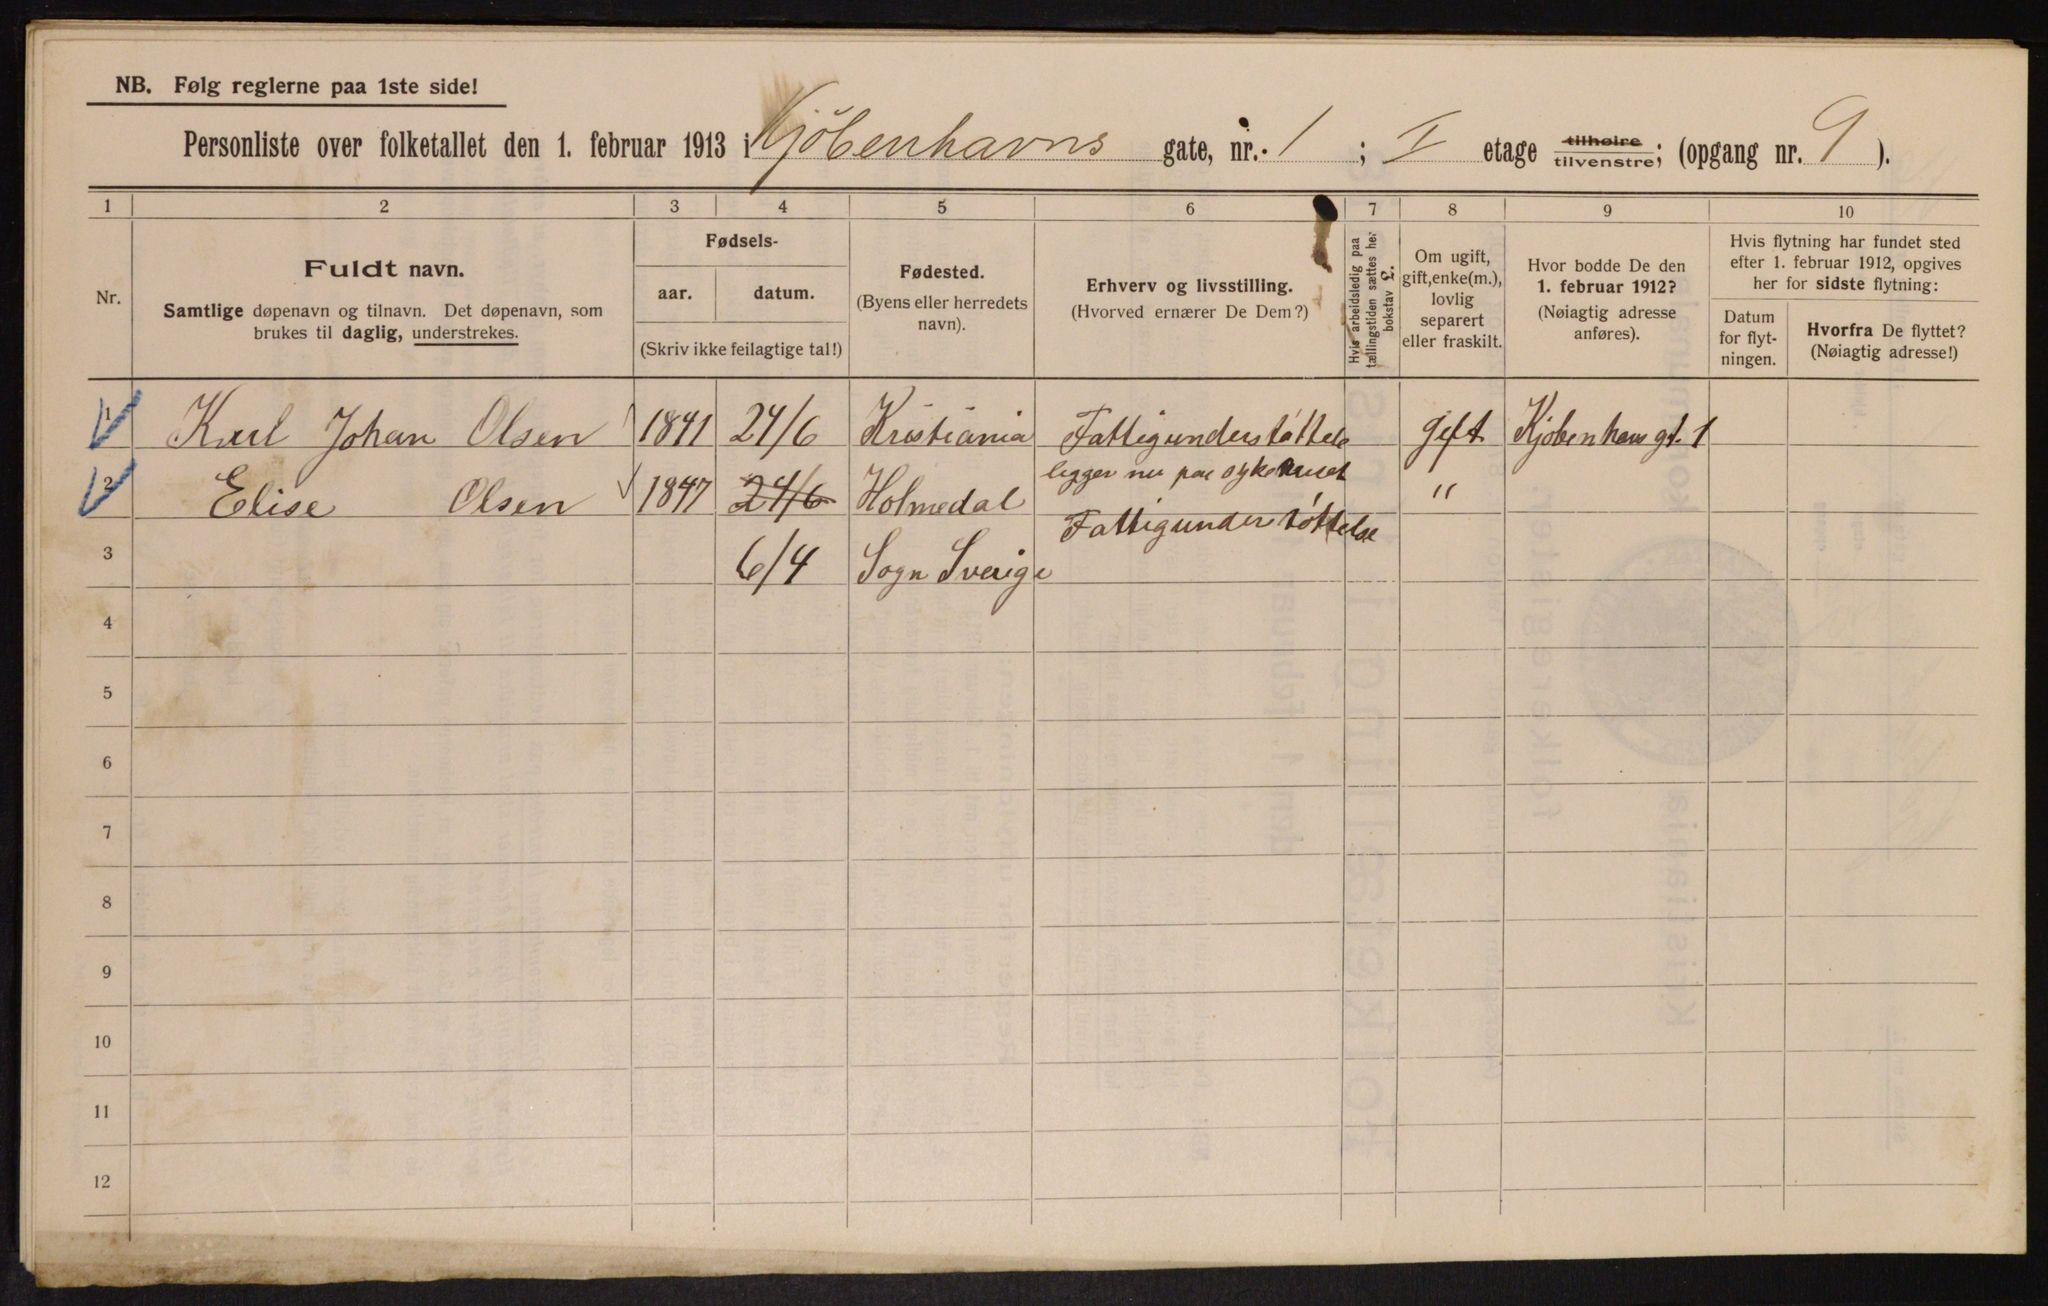 NB. Følg reglerne paa 1ste side!
Personliste over folketallet den 1. februar 1913 i Kjøbenhavns gate, nr. 1 ; I etage tilhøire tilvenstre; (opgang nr. 9 ).
1 2 3 4 5 6 7 8 9 10
Nr.
Fuldt navn.
Samtlige døpenavn og tilnavn. Det døpenavn, som
brukes til daglig, understrekes.
Fødsels-
aar. datum.
(Skriv ikke feilagtige tal!)
Fødested.
(Byens eller herredets
navn).
Erhverv og livsstilling.
(Hvorved ernærer De Dem?)
Hvis arbeidsledig paa
tællingstiden sættes her
bokstav L.
Om ugift,
gift, enke(m.),
lovlig
separert
eller fraskilt.
Hvor bodde De den
1. februar 1912?
(Nøiagtig adresse
anføres).
Hvis flytning har fundet sted
efter 1. februar 1912, opgives
her for sidste flytning:
Datum
for flyt-
ningen.
Hvorfra De flyttet?
(Nøiagtig adresse!)
1 Karl Johan Olsen 1841 24/6 Kristiania Fattigunderstøttelse gift Kjøbenhavsgt. 1
ligger nu paa sykehuset
2 Elise Olsen 1847 24/6 Holmedal "
Fattigunderstøttelse
3 6/4 Sogn Sverige
4
5
6
7
8
9
10
11
12